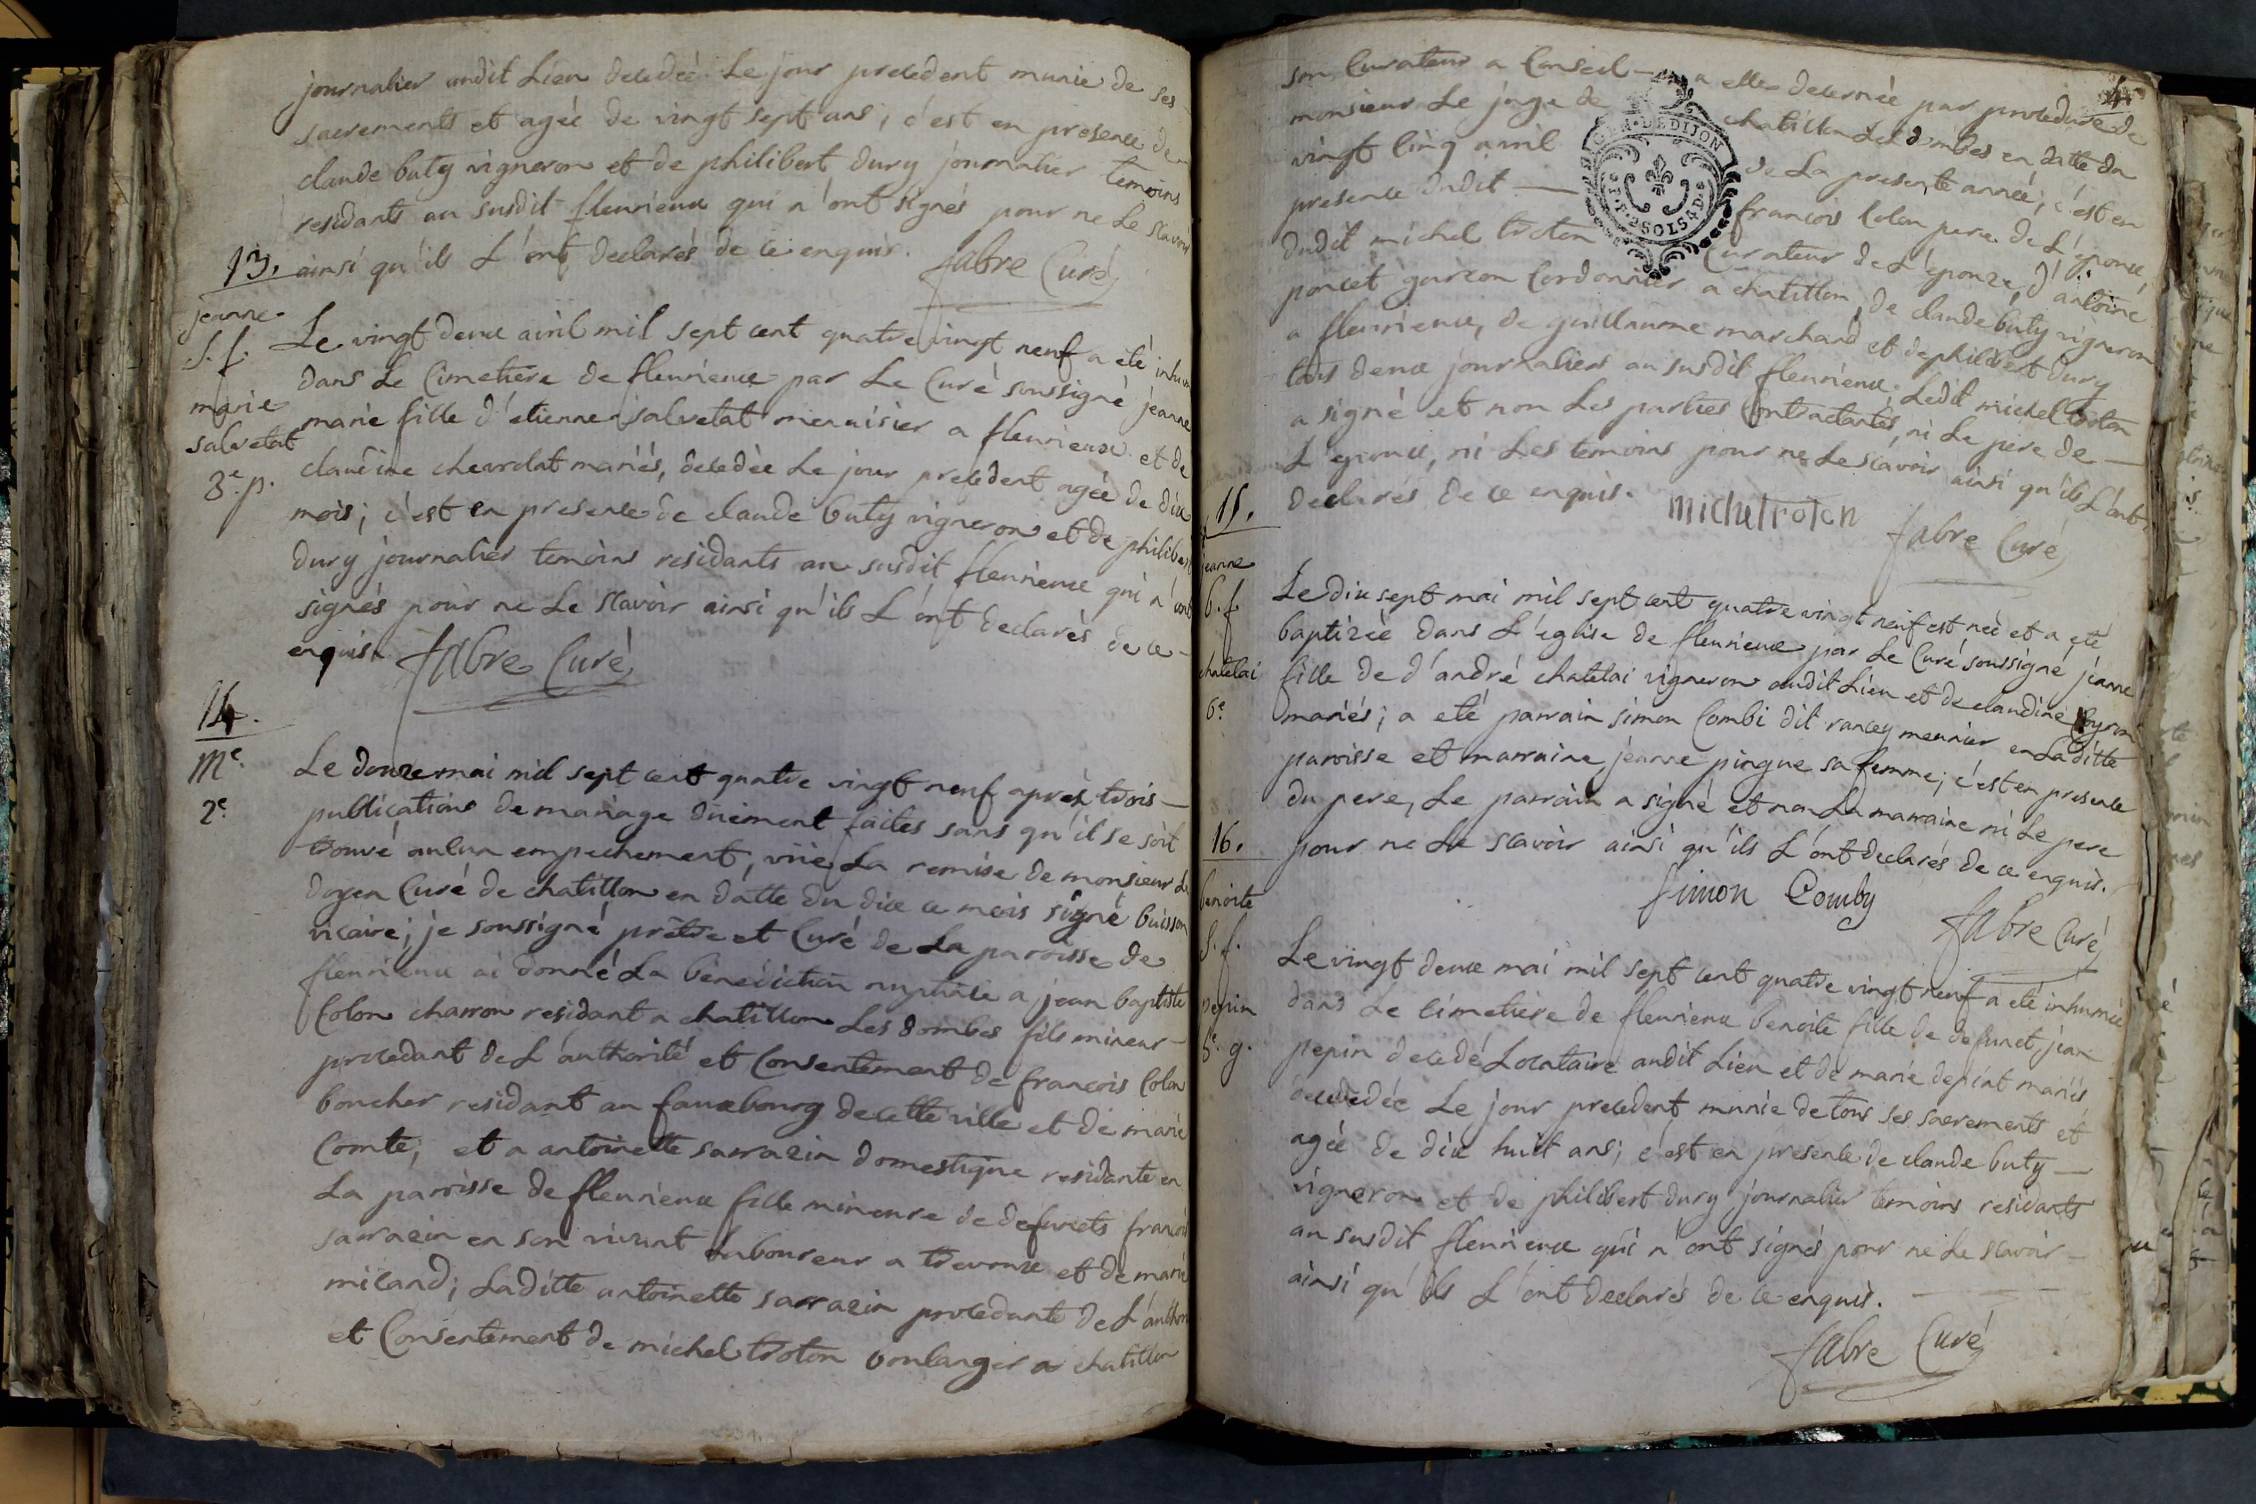 journalier audit Lieu decedée Le jour precedent munie de ses
sacrements et agée de vingt sept ans; c'est en presence de
claude buty vigneron et de philibert dury journalier temoins
residants au susdit fleurieux qui n'ont signés pour ne Le scavoir
ainsi qu'ils L'ont declarés de ce enquis. fabre Curé
13.
jeanne
S. f.
marie
salvetat
3e. p.
Le vingt deux avril mil sept cent quatre vingt neuf a eté inhumé
dans Le Cimetiere de fleurieux par Le Curé soussigné jeanne
marie fille d'etienne salvetat menuisier a fleurieux et de
claudine chevrolat mariés, decedée Le jour precedent agée de dix
mois; c'est en presence de claude buty vigneron et de philibert
dury journalier temoins residants au susdit fleurieux qui n'ont
signés pour ne Le scavoir ainsi qu'ils L'ont declarés de ce
enquis. fabre Curé
14.
Me.
2e.
Le douze mai mil sept cent quatre vingt neuf après trois
publications de mariage düement faites sans qu'il se soit
trouvé aucun empechement, vüe La remise de monsieur Le
doyen Curé de chatillon en datte du dix ce mois signé buisson
vicaire; je soussigné prêtre et Curé de La paroisse de
fleurieux ai donné La bénédiction nuptiale a jean baptiste
Colon charron residant a chatillon Les dombes fils mineur
procedant de L'authorité et Consentement de francois Colon
boucher residant au fauxbourg de cette ville et de marie
Comte; et a antoinette sarrazin domestique residante en
La paroisse de fleurieux fille mineure de defuncts francois
sarrazin en son vivant laboureur a trevoux et de marie
micand; Laditte antoinette sarrazin procedante de L'author
et Consentement de michel troton boulanger a chatillon
4
son Curateur a Conseil a elle decernée par procedure de
monsieur Le juge de chatillon Les dombes en datte du
vingt cinq avril de La presente année; c'est en
presence dudit francois Colon pere de L'epoux,
dudit michel troton Curateur de L'epouze, d'antoine
poncet garcon Cordonnier a chatillon, de claude buty vigneron
a fleurieux, de guillaume marchand et de philibert dury
tous deux journaliers au susdit fleurieux. Ledit michel troton
a signé et non Les parties Contractantes, ni Le pere de
L'epoux, ni Les temoins pour ne Le scavoir ainsi qu'ils L'ont
declarés de ce enquis. michel troton fabre Curé
GEN. DE DIJON
15.
jeanne
b. f.
chatelai
6e.
Le dix sept mai mil sept cent quatre vingt neuf est née et a eté
baptizée dans L'eglise de fleurieux par Le Curé soussigné jeanne
fille de d'andré chatelai vigneron audit Lieu et de claudine
mariés; a eté parrain simon Combi dit rancey meunier en Laditte
paroisse et marraine jeanne pingue sa femme; c'est en presence
du pere, Le parrain a signé et non La marraine ni Le pere
pour ne Le scavoir ainsi qu'ils L'ont declarés de ce enquis.
Simon Comby
fabre Curé
16.
benoite
S. f.
pepin
5e. g.
Le vingt deux mai mil sept cent quatre vingt neuf a eté inhumée
dans Le Cimetière de fleurieux benoite fille de defunct jean
pepin decedé Locataire audit Lieu et de marie depint mariés
decedée Le jour precedent, munie de tous ses sacrements et
agée de dix huit ans; c'est en presence de claude buty
vigneron et de philibert dury journalier temoins residants
au susdit fleurieux qui n'ont signés pour ne Le scavoir
ainsi qu'ils L'ont declarés de ce enquis.
fabre Curé